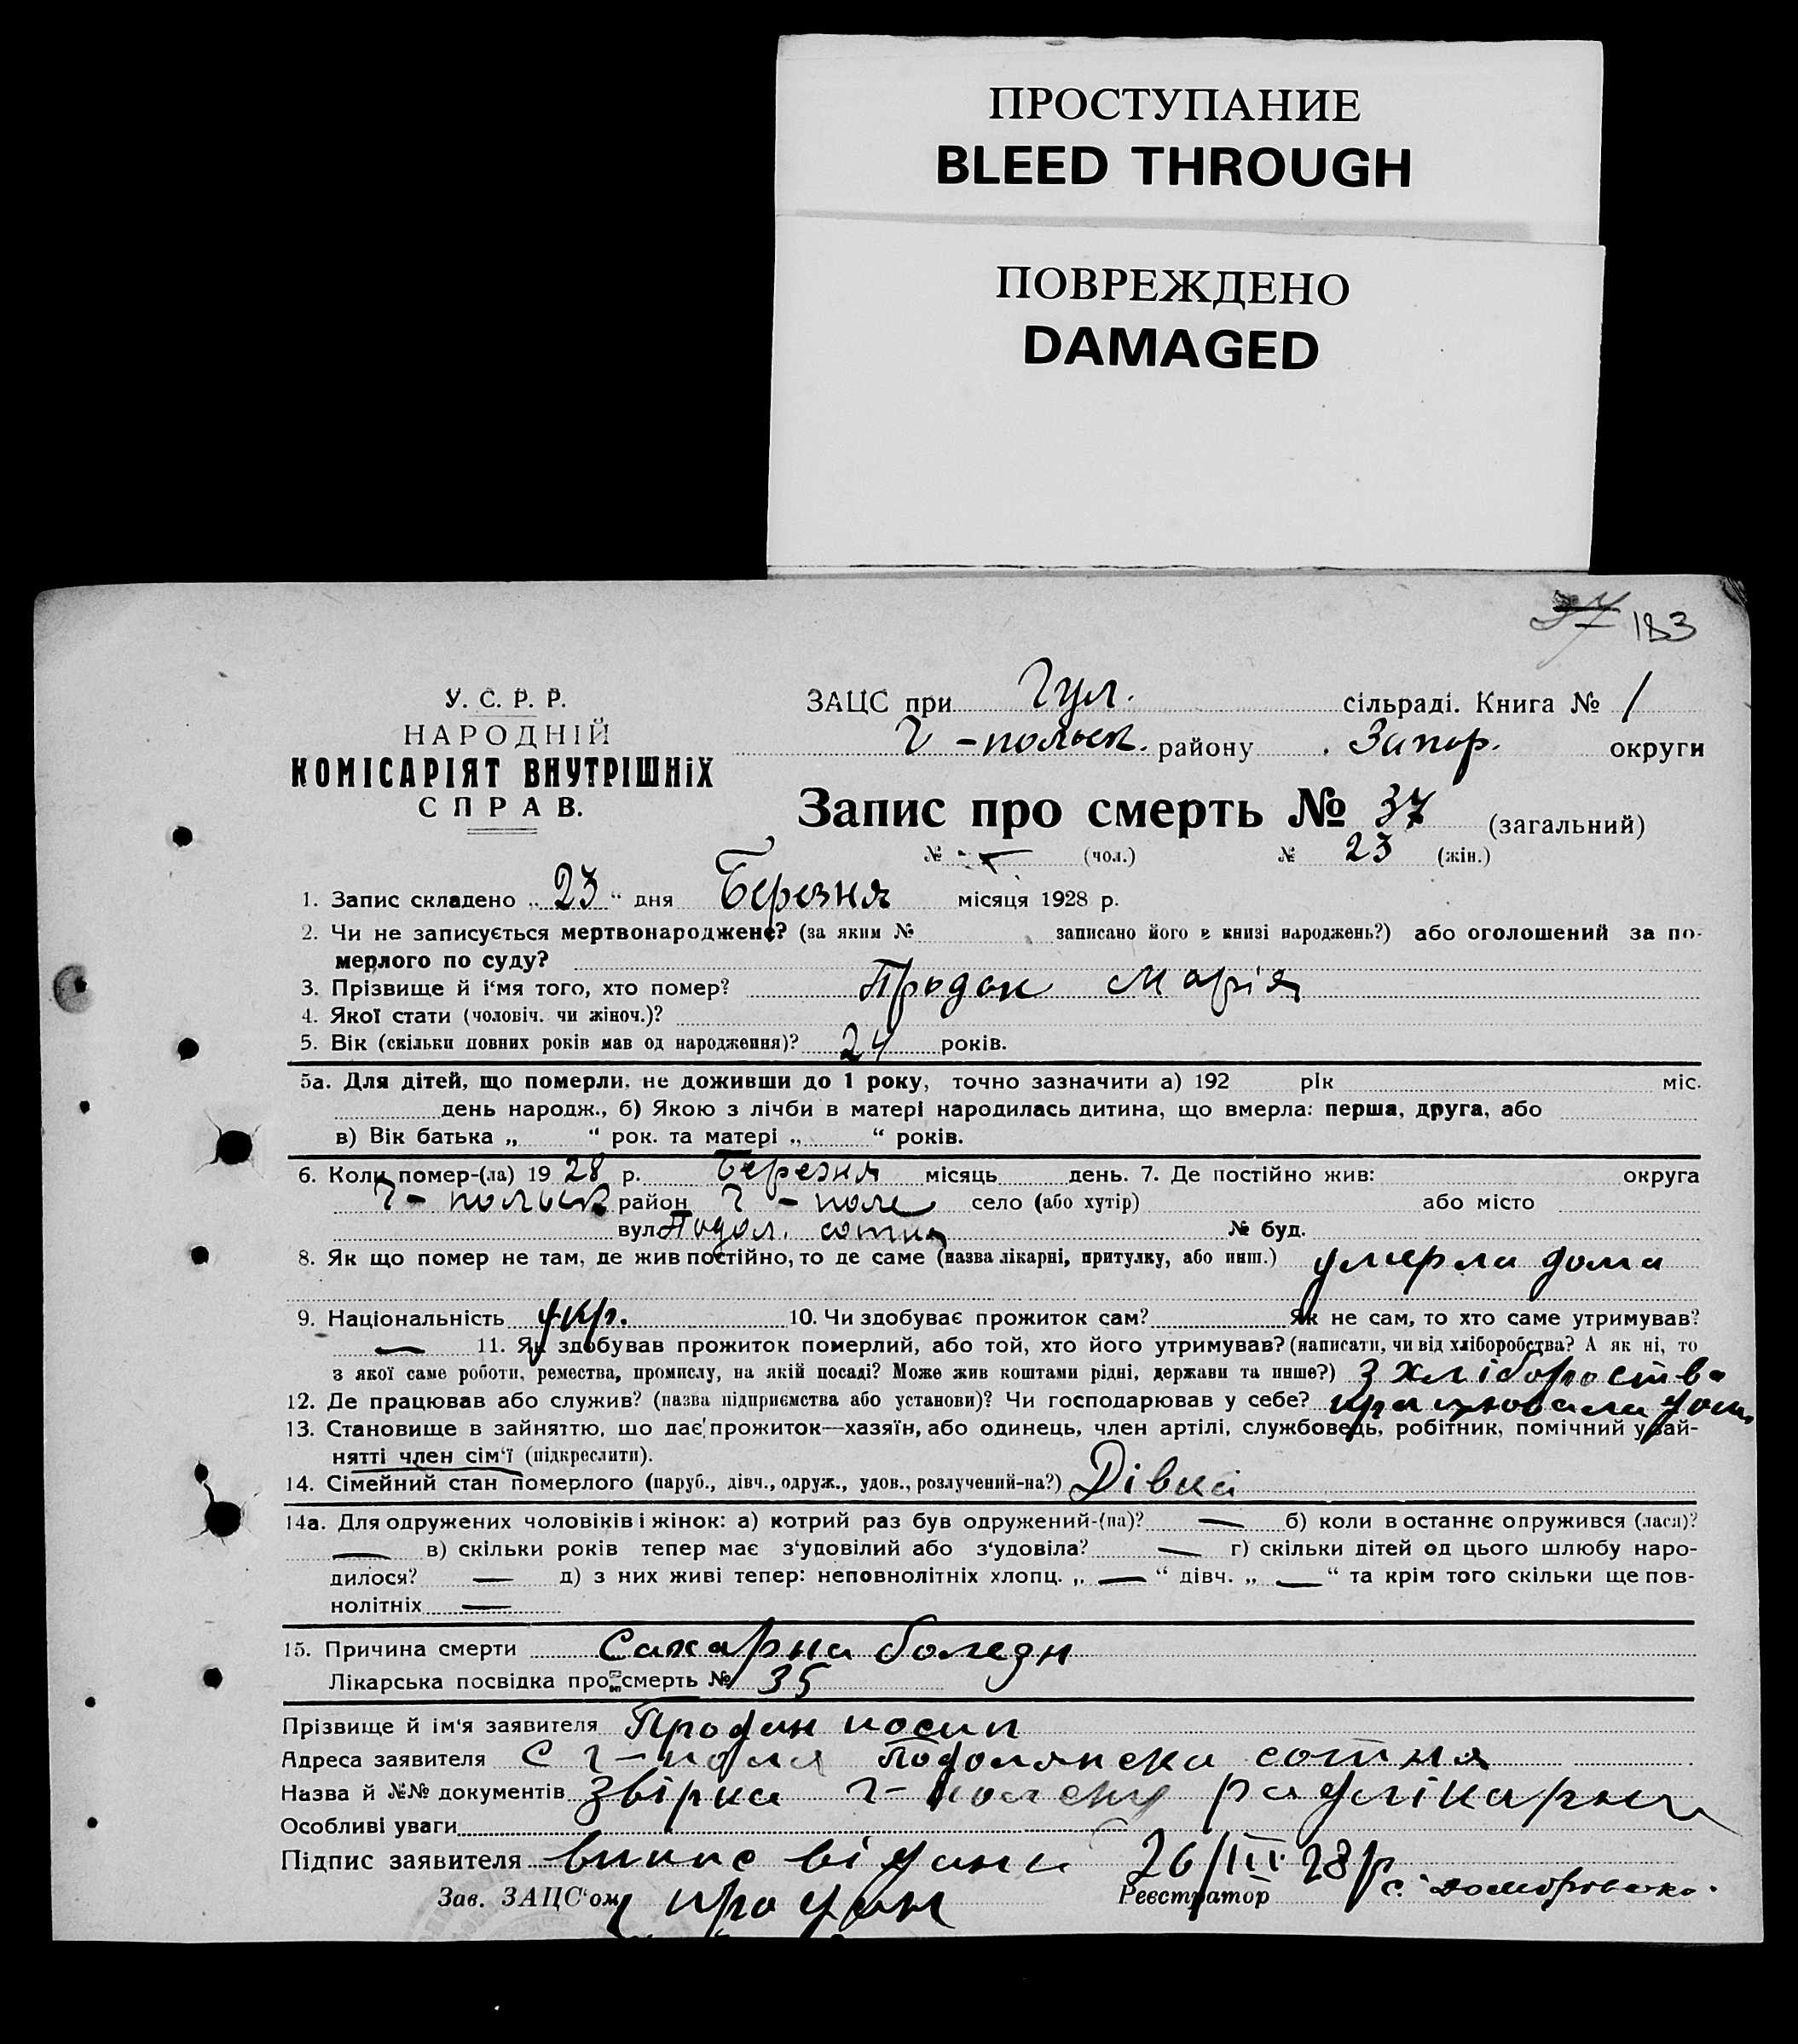 ПРОСТУПАНИЕ
BLEED THROUGH
ПОВРЕЖДЕНО
DAMAGED
37 183
У. С. Р. Р.
НАРОДНІЙ
КОМІСАРІЯТ ВНУТРІШНіХ
СПРАВ.
ЗАЦС при Гул. сільраді. Книга № 1
Г-польск. району Запор. округи
Запис про смерть № 37 (загальний)
№ (чол.) № 23 (жін.)
1. Запис складено „23“ дня Березня місяця 1928 р.
2. Чи не записується мертвонароджене? (за яким № записано його в книзі народжень?) або оголошений за по-
мерлого по суду?
3. Прізвище й і'мя того, хто помер? Продан Марія
4. Якої стати (чоловіч. чи жіноч.)?
5. Вік (скільки повних років мав од народження)? 24 років.
5а. Для дітей, що померли, не доживши до 1 року, точно зазначити а) 192 рік міс.
день народж., б) Якою з лічби в матері народилась дитина, що вмерла: перша, друга, або
в) Вік батька „ “ рок. та матері „ “ років.
6. Коли помер-(ла) 19 28 р. Березня місяць день. 7. Де постійно жив: округа
Г-польск район Г-поле село (або хутір) або місто
вул. Подол. сотня № буд.
8. Як що помер не там, де жив постійно, то де саме (назва лікарні, притулку, або инш.) умерла дома
9. Національність укр. 10. Чи здобуває прожиток сам? Як не сам, то хто саме утримував?
— 11. Як здобував прожиток померлий, або той, хто його утримував? (написати, чи від хліборобства? А як ні, то
з якої саме роботи, ремества, промислу, на якій посаді? Може жив коштами рідні, держави та инше?) з хліборобства
12. Де працював або служив? (назва підприємства або установи)? Чи господарював у себе? працювала дома
13. Становище в зайняттю, що дає прожиток—хазяїн, або одинець, член артілі, службовець, робітник, помічний у зай-
нятті член сім'ї (підкреслити).
14. Сімейний стан померлого (паруб., дівч., одруж., удов., розлучений-на?) Дівка
14а. Для одружених чоловіків і жінок: а) котрий раз був одружений-(на)? — б) коли в останнє одружився (лася)?
— в) скільки років тепер має з'удовілий або з'удовіла? — г) скільки дітей од цього шлюбу наро-
дилося? — д) з них живі тепер: неповнолітніх хлопц. „ — “ дівч. „ — “ та крім того скільки ще пов-
нолітніх —
15. Причина смерти Сахарна болезн
Лікарська посвідка про смерть № 35
Прізвище й ім'я заявителя Продан иосип
Адреса заявителя С Г-поля Подолянска сотня
Назва й №№ документів Звірка Г-польску райлікарни
Особливі уваги
Підпис заявителя випис відани 26/III 28р
Зав. ЗАЦС'ом Продан Реєстратор